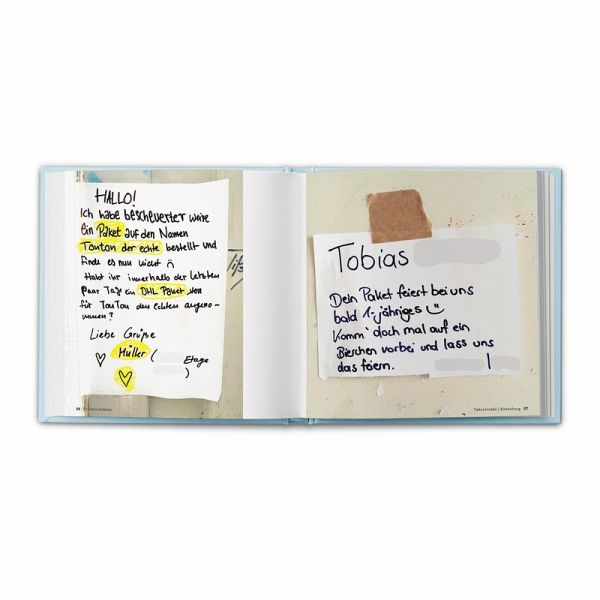 HALLO!
Ich habe bescheuerter weise
ein Paket auf den Namen
Tonton der echte bestellt und
finde es nun nicht
Habt ihr innerhalb der letzten
paar Tage ein DHL Paket von
für TonTon den echten angeno-
mmen?
Liebe Grüße
Müller ( Etage
)
26 | Friedrichshain
Tobias
Dein Paket feiert bei uns
bald 1-jähriges
Komm' doch mal auf ein
Bierchen vorbei und lass uns
das feiern.
Taborstraße | Kreuzberg 27